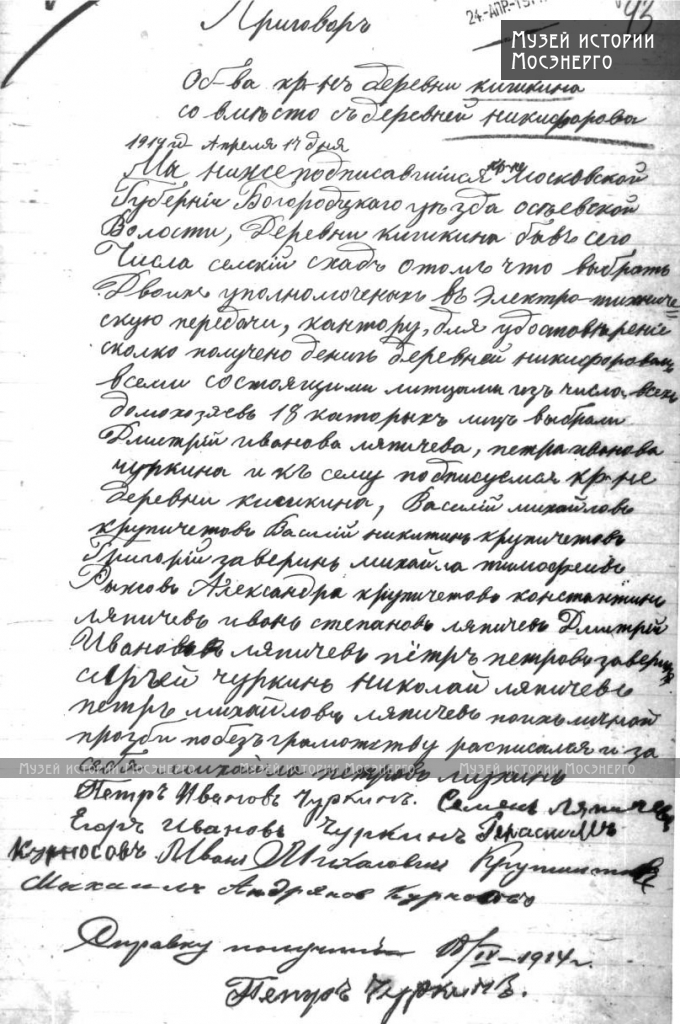 43
24-АПР-191
Музей истории
Мосэнерго
Приговоръ
Об-ва кр-нъ деревни кишкина
со вмѣсто съ деревней никифорова
1914 г. Апреля 17 дня
Мы нижеподписавшиіися кр-не Московской
Губерніи Богородцкаго уѣзда
Волости, Деревни кишкина бывъ сего
Числа селскій сходъ отомъ что выбрать
Двоихъ уполномоченыхъ въ Электро-
скую передачи, кантору, для удостовѣреніе
сколко получено дениг деревней
всеми состоящими литцами изъ числа всехъ
домохозяевъ 18 каторыхъ лицъ выбрали
Дмитрій иванова ляпичева, петра иванова
чуркина и къ сему подписуемся кр-не
деревни кишкина, Василій михайловъ
крупичетовъ Василій никитинъ крупичетовъ
Григорій заверинъ михайла тимофеивъ
Александра крупичетовъ константинъ
ляпичевъ иванъ степановъ ляпичевъ Дмитрій
Ивановъ ляпичевъ пётръ петровъ
сергѣй чуркинъ николай ляпичевъ
петръ михайловъ ляпичевъ поихъ личной
прозби побезъграмотству расписался и за
себя михайла петровъ
Музей истории Мосэнерго Музей истории Мосэнерго Музей истории Мосэнерго
Петръ Ивановъ Чуркинъ. Семенъ Ляпичевъ
Егоръ Ивановъ Чуркинъ Герасимъ
Курносовъ Иванъ
Михаилъ Андрянов Курносовъ
Справку получилъ 18/IV-1914 г.
Петръ Чуркинъ.